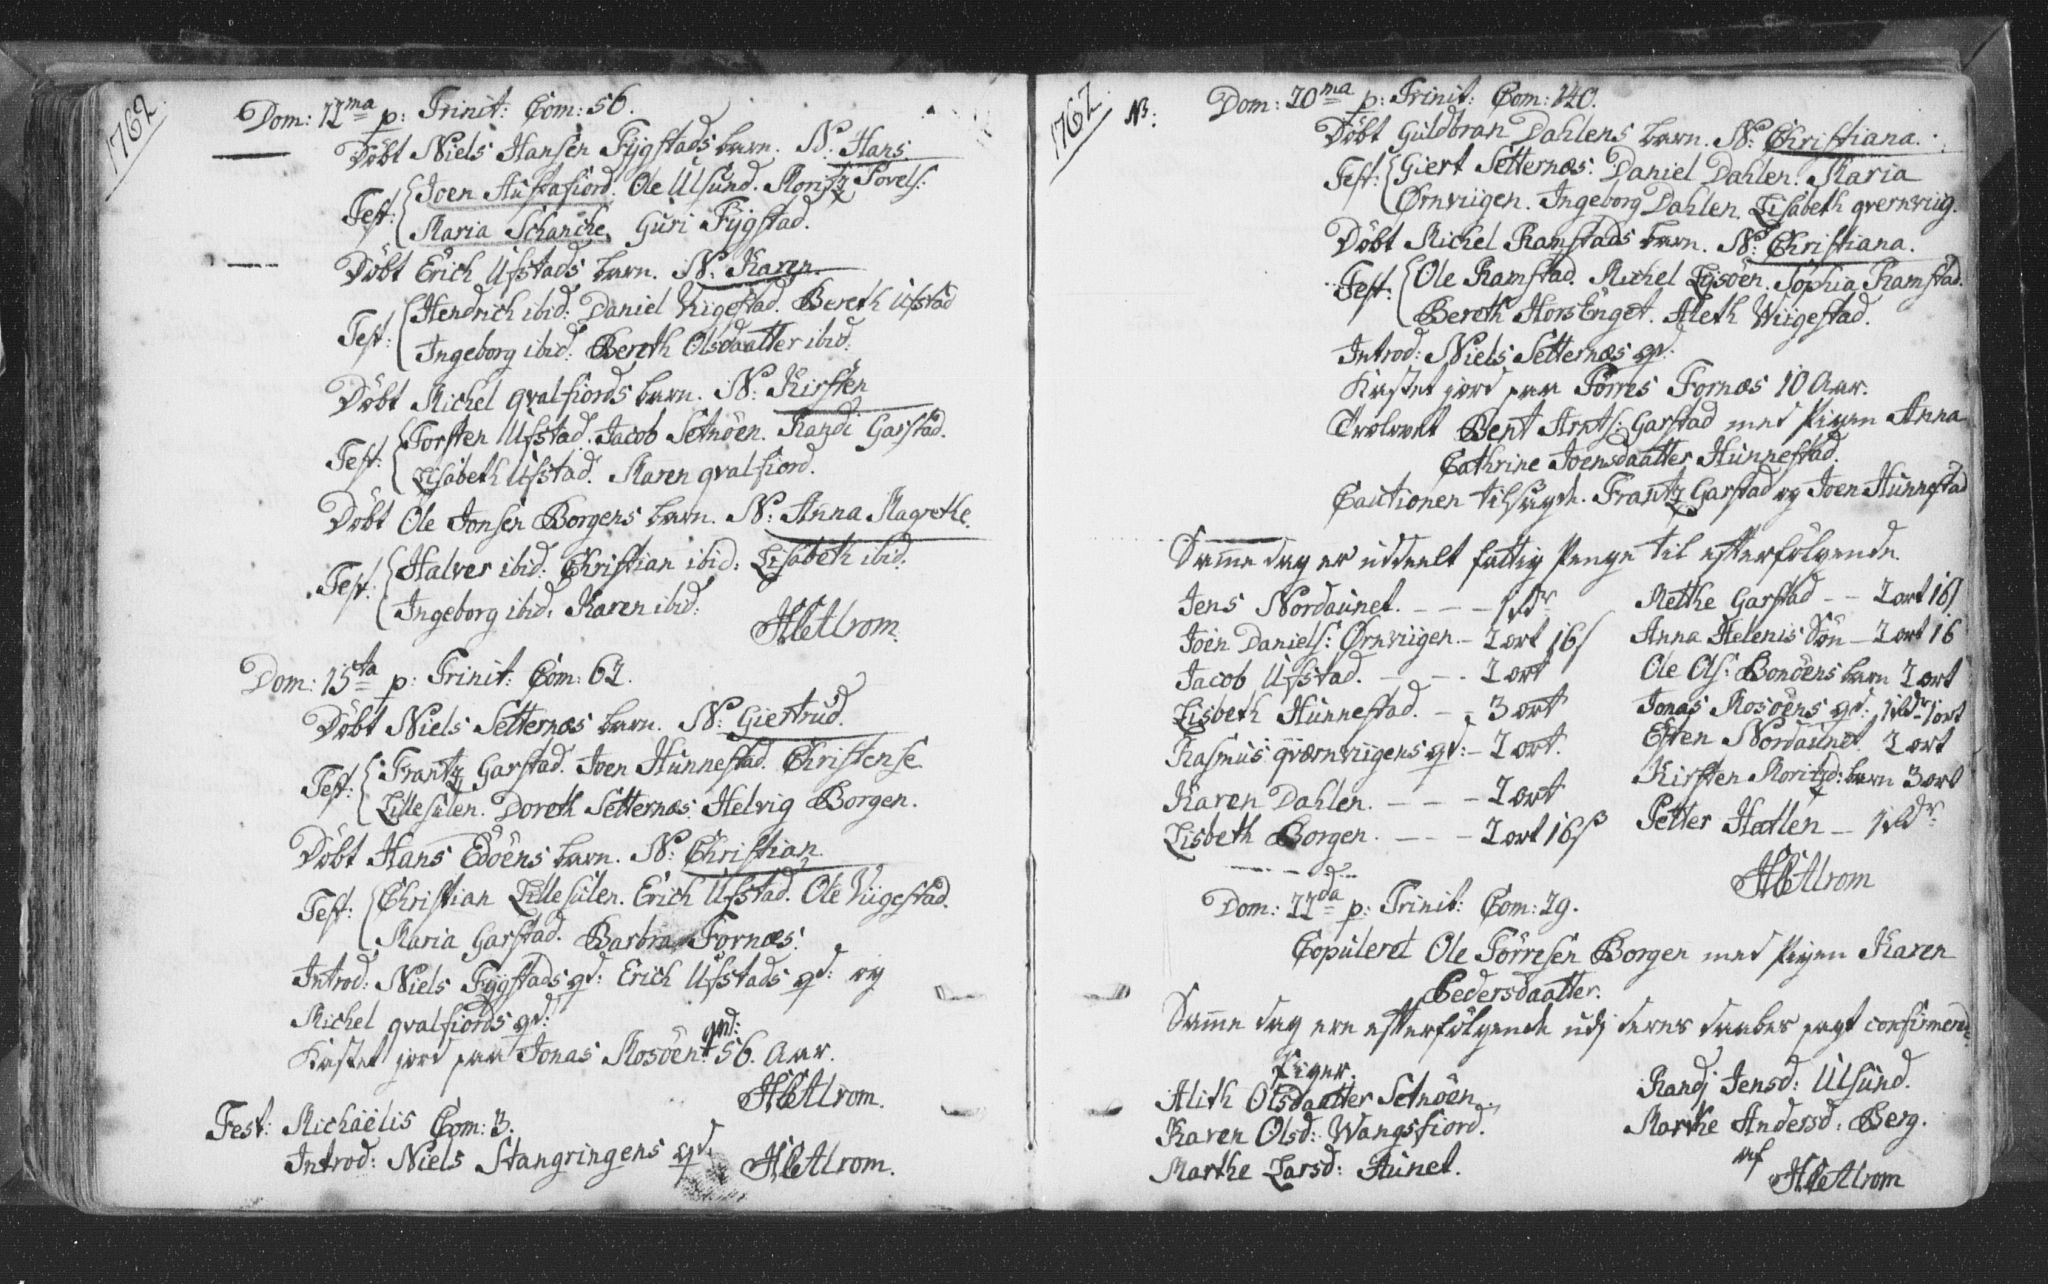 1762
Dom: 12ma p: Trinit: Com: 56.
Døbt Niels Hansen Fygstads barn. N: Hans
Test: Joen Austafiord. Ole Ulsund. Moritz Povels:
Maria Schanche, Guri Fygstad.
Døbt Erich Ufstads barn. N: Karen.
Test: Hendrich ibid: Daniel Viigestad. Bereth Ufstad
Ingeborg ibid: Bereth Olsdaatter ibid:
Døbt Michel qvalfiords barn. N: Kirsten
Test: Torsten Ufstad. Jacob Setnöen. Randi Garstad.
Lisabeth Ufstad. Maren qvalfiord.
Døbt Ole Jonsen Borgens barn. N: Anna Magrethe.
Test: Halver ibid: Christian ibid: Lisabeth ibid:
Ingeborg ibid: Karen ibid:
HCAlrom.
Dom: 15ta p: Trinit: Com: 62.
Døbt Niels Setternæs barn. N: Giertrud.
Test: Frantz Garstad. Joen Hunnestad. Christense
Lillesulen. Doroth Setternæs. Helvig Borgen.
Døbt Hans Edöens barn. N: Christian
Test: Christian Lillesulen. Erich Ufstad. Ole Viigestad.
Maria Garstad. Barbra Fornæs.
Introd: Niels Fygstads qd: Erich Ufstads qd: og
Michel qvalfiords qd:
Kastet jord paa Jonas Mosöens qvd: 56. Aar.
HCAlrom.
Fest: Michaëlis Com: 3.
Introd: Niels Stangringens qd. HCAlrom.
1762.
NB:
Dom: 20ma p: Trinit: Com: 140.
Døbt Guldbran Dahlens barn. N: Christiana.
Test: Giert Setternæs. Daniel Dahlen. Maria
Ørnviigen. Ingeborg Dahlen. Lisabeth qvernviig.
Døbt Michel Ramstads barn. N: Christiana.
Test: Ole Ramstad. Michel Lysöen. Sophia Ramstad.
Bereth HorsEnget. Aleth Wiigestad.
Introd: Niels Setternæs qd:
Kastet jord paa Törres Fornæs 10 Aar.
Trolovet Bent Arnts: Garstad med Pigen Anna
Cathrine Joensdaatter Hunnestad.
Cautionen tilsagde. Frantz Garstad og Joen Hunnestad
Samme dag er uddeelt fattig Penge til efterfølgende.
Jens Nordaunet. - - - 1 rdr
Joen Daniels: Ørnviigen - 2 ort 16 s
Jacob Ufstad. - - - 2 ort
Lisbeth Hunnestad. - - 3 ort
Rasmus qværnviigens qd: - 2 ort.
Karen Dahlen. - - - 2 ort
Lisbeth Borgen. - - - 2 ort 16 s
Methe Garstad - - 2 ort 16 s
Anna Helenis Sön - 2 ort 16
Ole Ols: Bonöens barn 2 ort
Jonas Mosöens qd: 1 rdr 1 ort
Esten Nordaunet. 2 ort
Kirsten Moritzd: barn 3 ort
Petter Hatlen - 1 rdr
HCAlrom
Dom: 22da p: Trinit: Com: 29.
Copuleret Ole Törresen Borgen med Pigen Karen
Pedersdaatter.
Samme dag ere efterfølgende udj deres daabes pagt confirmerede
Piger.
Alith Olsdaatter Setnöen.
Karen Olsd: Wangsfiord.
Marthe Larsd: Aunet.
Randj Jensd: Ulsund.
Marthe Andersd: Berg.
af
HCAlrom